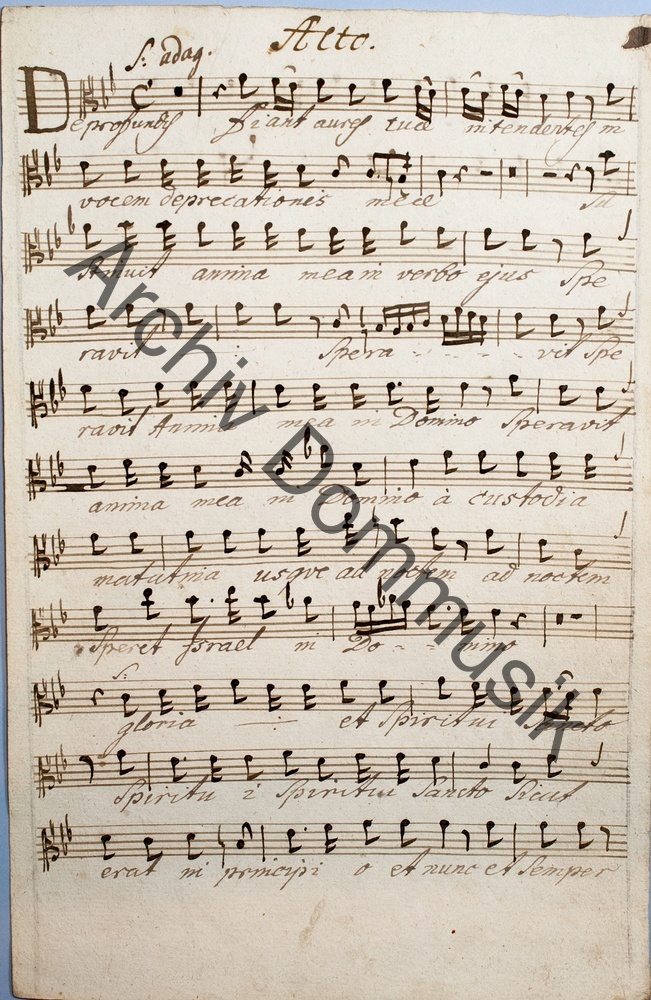 Alto.
S: adag.
De profundis fiant aures tuæ intendentes in
vocem deprecationis meæ Su
stinuit anima mea in verbo ejus Spe
ravit Spera - - - - vit Spe
ravit Anima mea in Domino Speravit
anima mea in Domino à custodia
matutina usque ad noctem ad noctem
Speret Israel in Do - - mino
S:
gloria et Spiritui Sancto
Spiritu i Spiritui Sancto Sicut
erat in principi o et nunc et Semper
Archiv Dommusik